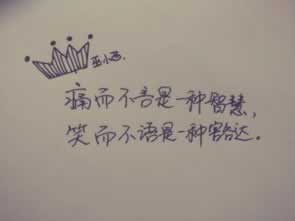 痛而不言是一种智慧,
笑而不语是一种豁达。